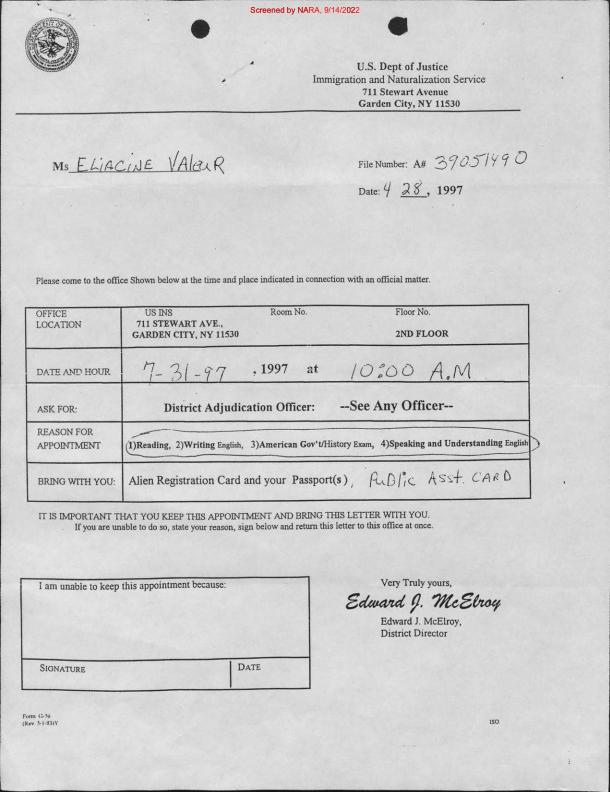 Screened by NARA, 9/14/2022
U.S. Dept of Justice
Immigration and Naturalization Service
711 Stewart Avenue
Garden City, NY 11530
Ms ELiACiNE VAlcuR
File Number: A# 39051490
Date: 4 28, 1997
Please come to the office Shown below at the time and place indicated in connection with an official matter.
OFFICE LOCATION
US INS
711 STEWART AVE.,
GARDEN CITY, NY 11530
Room No.
Floor No.
2ND FLOOR
DATE AND HOUR
7-31-97 , 1997 at 10:00 A.M
ASK FOR:
District Adjudication Officer: --See Any Officer--
REASON FOR
APPOINTMENT
(1)Reading, 2)Writing English, 3)American Gov't/History Exam, 4)Speaking and Understanding English
BRING WITH YOU:
Alien Registration Card and your Passport(s), PuBlic Asst. CARD
IT IS IMPORTANT THAT YOU KEEP THIS APPOINTMENT AND BRING THIS LETTER WITH YOU.
If you are unable to do so, state your reason, sign below and return this letter to this office at once.
I am unable to keep this appointment because:
SIGNATURE
DATE
Very Truly yours,
Edward J. McElroy
Edward J. McElroy,
District Director
Form G-56
(Rev 5-1-83)Y
ISO